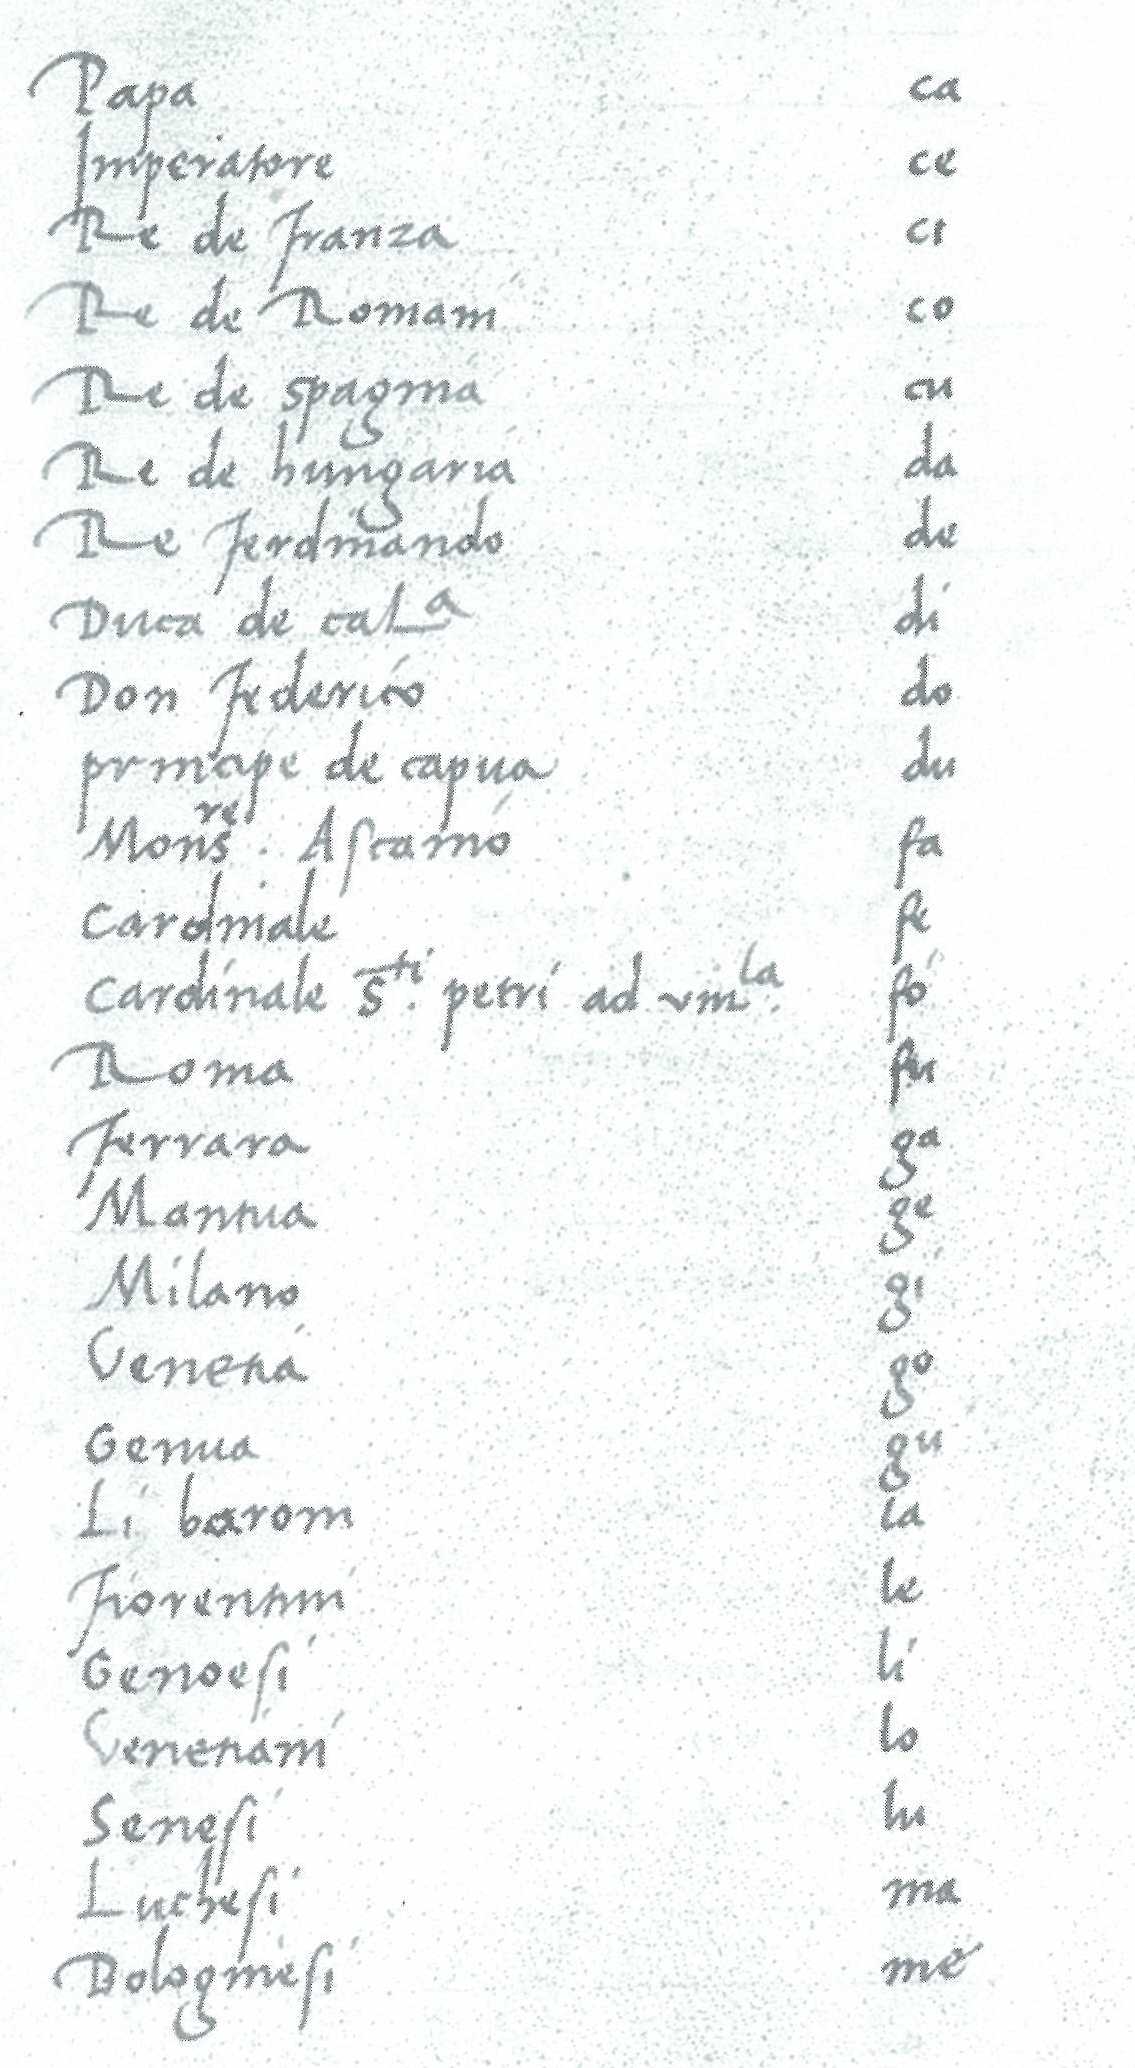 Papa ca
Imperatore ce
Re de franza ci
Re de Romani co
Re de spagnia cu
Re de hungaria da
Re ferdinando de
Duca de cal^a di
Don federico do
principe de capua du
Mons^re. Ascanio fa
Cardinale fe
Cardinale S^ti. petri ad vin^la. fo
Roma fu
ferrara ga
Mantua ge
Milano gi
Venetia go
Genua gu
Li baroni la
fiorentini le
Genoesi li
Venetiani lo
Senesi lu
Luchesi ma
Bolognesi me